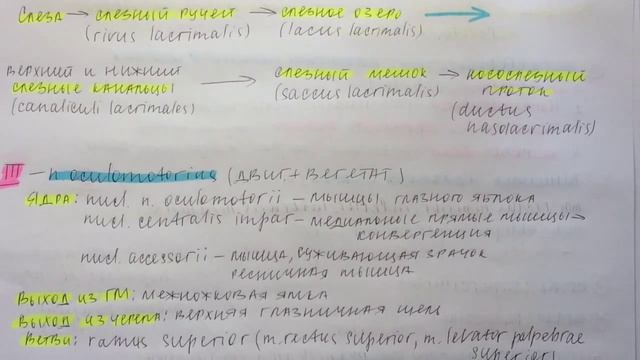 Слеза → слезный ручей → слезное озеро →
(rivus lacrimalis) (lacus lacrimalis)
верхний и нижний → слезный мешок → носослезный
слезные канальцы (saccus lacrimalis) проток
(canaliculi lacrimales) (ductus
nasolacrimalis)
III – n. oculomotorius (двиг + вегетат)
Ядра: nucl. n. oculomotorii – мышцы глазного яблока
nucl. centralis impar – медиальные прямые мышцы →
конвергенция
nucl. accessorii – мышца, суживающая зрачок
ресничная мышца
Выход из ГМ: межножковая ямка
Выход из черепа: верхняя глазничная щель
Ветви: ramus superior (m. rectus superior, m. levator palpebrae
superior)